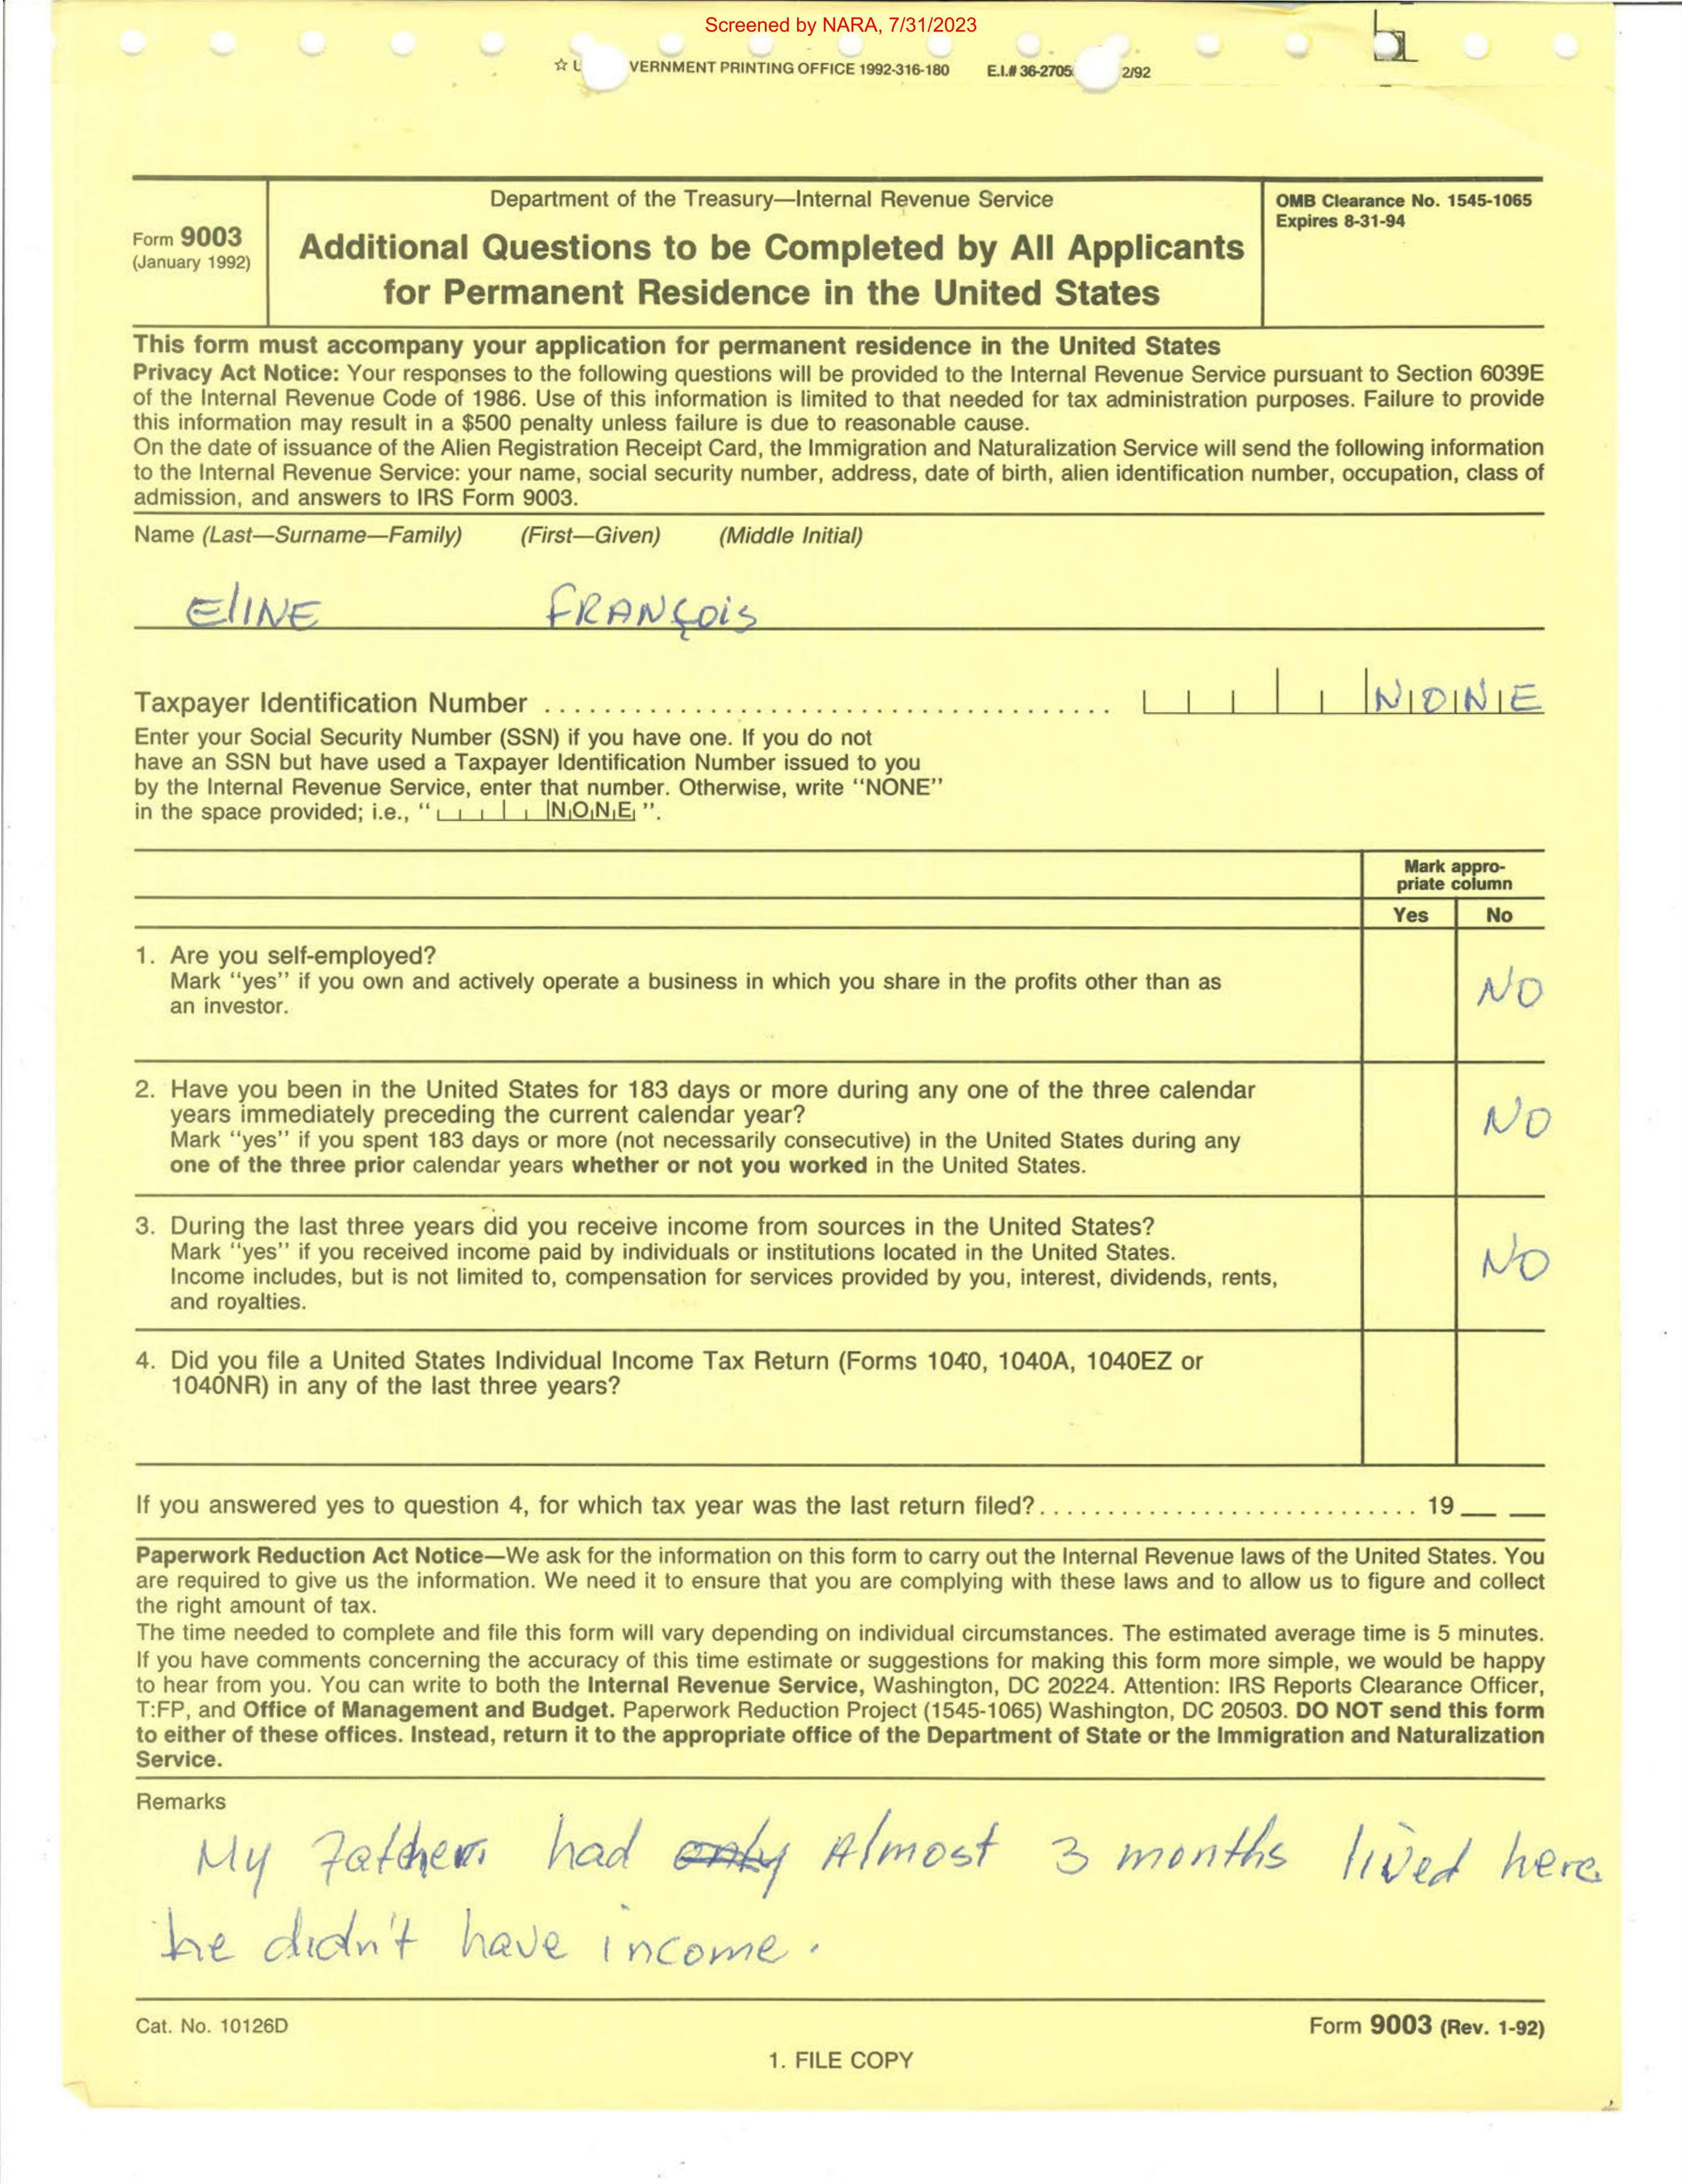 Screened by NARA, 7/31/2023
☆ U VERNMENT PRINTING OFFICE 1992-316-180 E.I.# 36-2705 2/92
Department of the Treasury—Internal Revenue Service
OMB Clearance No. 1545-1065
Expires 8-31-94
Form 9003
(January 1992)
Additional Questions to be Completed by All Applicants
for Permanent Residence in the United States
This form must accompany your application for permanent residence in the United States
Privacy Act Notice: Your responses to the following questions will be provided to the Internal Revenue Service pursuant to Section 6039E
of the Internal Revenue Code of 1986. Use of this information is limited to that needed for tax administration purposes. Failure to provide
this information may result in a $500 penalty unless failure is due to reasonable cause.
On the date of issuance of the Alien Registration Receipt Card, the Immigration and Naturalization Service will send the following information
to the Internal Revenue Service: your name, social security number, address, date of birth, alien identification number, occupation, class of
admission, and answers to IRS Form 9003.
Name (Last—Surname—Family) (First—Given) (Middle Initial)
ElINE FRANÇOiS
Taxpayer Identification Number ....................................... NONE
Enter your Social Security Number (SSN) if you have one. If you do not
have an SSN but have used a Taxpayer Identification Number issued to you
by the Internal Revenue Service, enter that number. Otherwise, write "NONE"
in the space provided; i.e., " NONE ".
Mark appro-
priate column
Yes No
1. Are you self-employed?
Mark "yes" if you own and actively operate a business in which you share in the profits other than as
an investor.
NO
2. Have you been in the United States for 183 days or more during any one of the three calendar
years immediately preceding the current calendar year?
Mark "yes" if you spent 183 days or more (not necessarily consecutive) in the United States during any
one of the three prior calendar years whether or not you worked in the United States.
NO
3. During the last three years did you receive income from sources in the United States?
Mark "yes" if you received income paid by individuals or institutions located in the United States.
Income includes, but is not limited to, compensation for services provided by you, interest, dividends, rents,
and royalties.
NO
4. Did you file a United States Individual Income Tax Return (Forms 1040, 1040A, 1040EZ or
1040NR) in any of the last three years?
If you answered yes to question 4, for which tax year was the last return filed?............................ 19 __ __
Paperwork Reduction Act Notice—We ask for the information on this form to carry out the Internal Revenue laws of the United States. You
are required to give us the information. We need it to ensure that you are complying with these laws and to allow us to figure and collect
the right amount of tax.
The time needed to complete and file this form will vary depending on individual circumstances. The estimated average time is 5 minutes.
If you have comments concerning the accuracy of this time estimate or suggestions for making this form more simple, we would be happy
to hear from you. You can write to both the Internal Revenue Service, Washington, DC 20224. Attention: IRS Reports Clearance Officer,
T:FP, and Office of Management and Budget. Paperwork Reduction Project (1545-1065) Washington, DC 20503. DO NOT send this form
to either of these offices. Instead, return it to the appropriate office of the Department of State or the Immigration and Naturalization
Service.
Remarks
My Father had only Almost 3 months lived here
he didn't have income.
Cat. No. 10126D
Form 9003 (Rev. 1-92)
1. FILE COPY